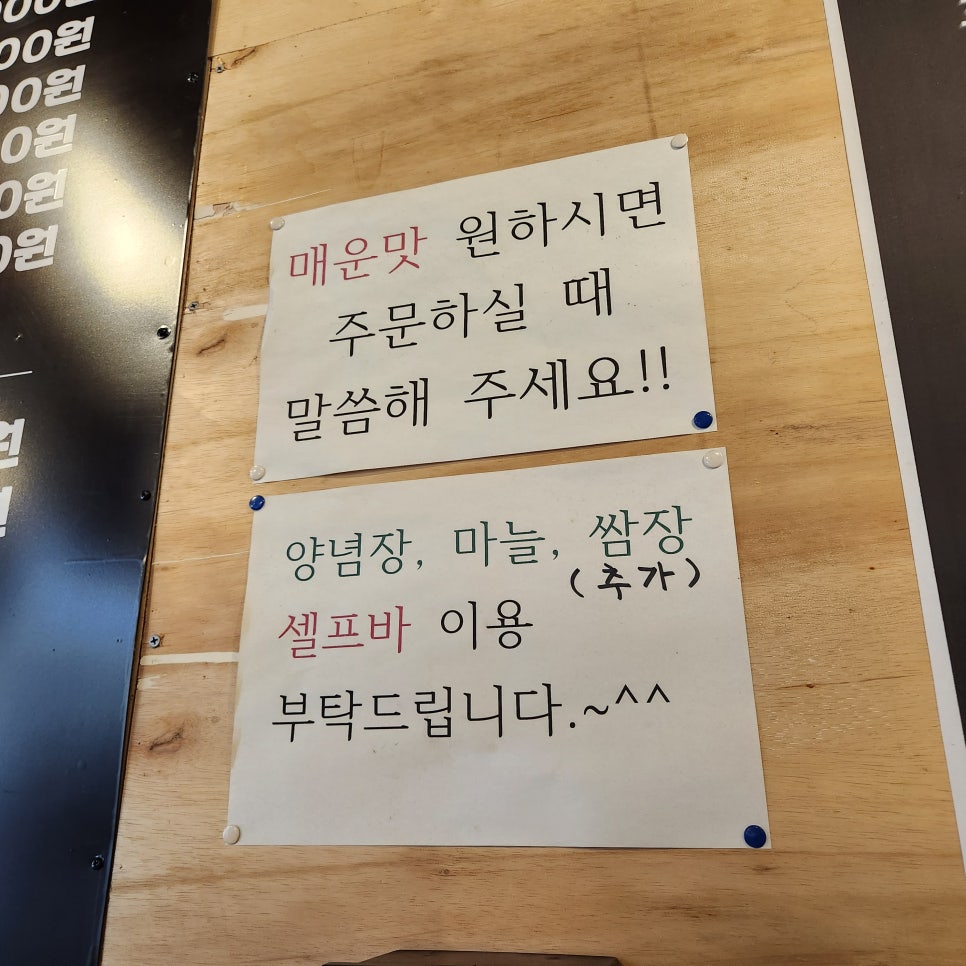 00원
00원
00원
0원
0원
0원
원
매운맛 원하시면
주문하실 때
말씀해 주세요!!
양념장, 마늘, 쌈장
(추가)
셀프바 이용
부탁드립니다.~^^